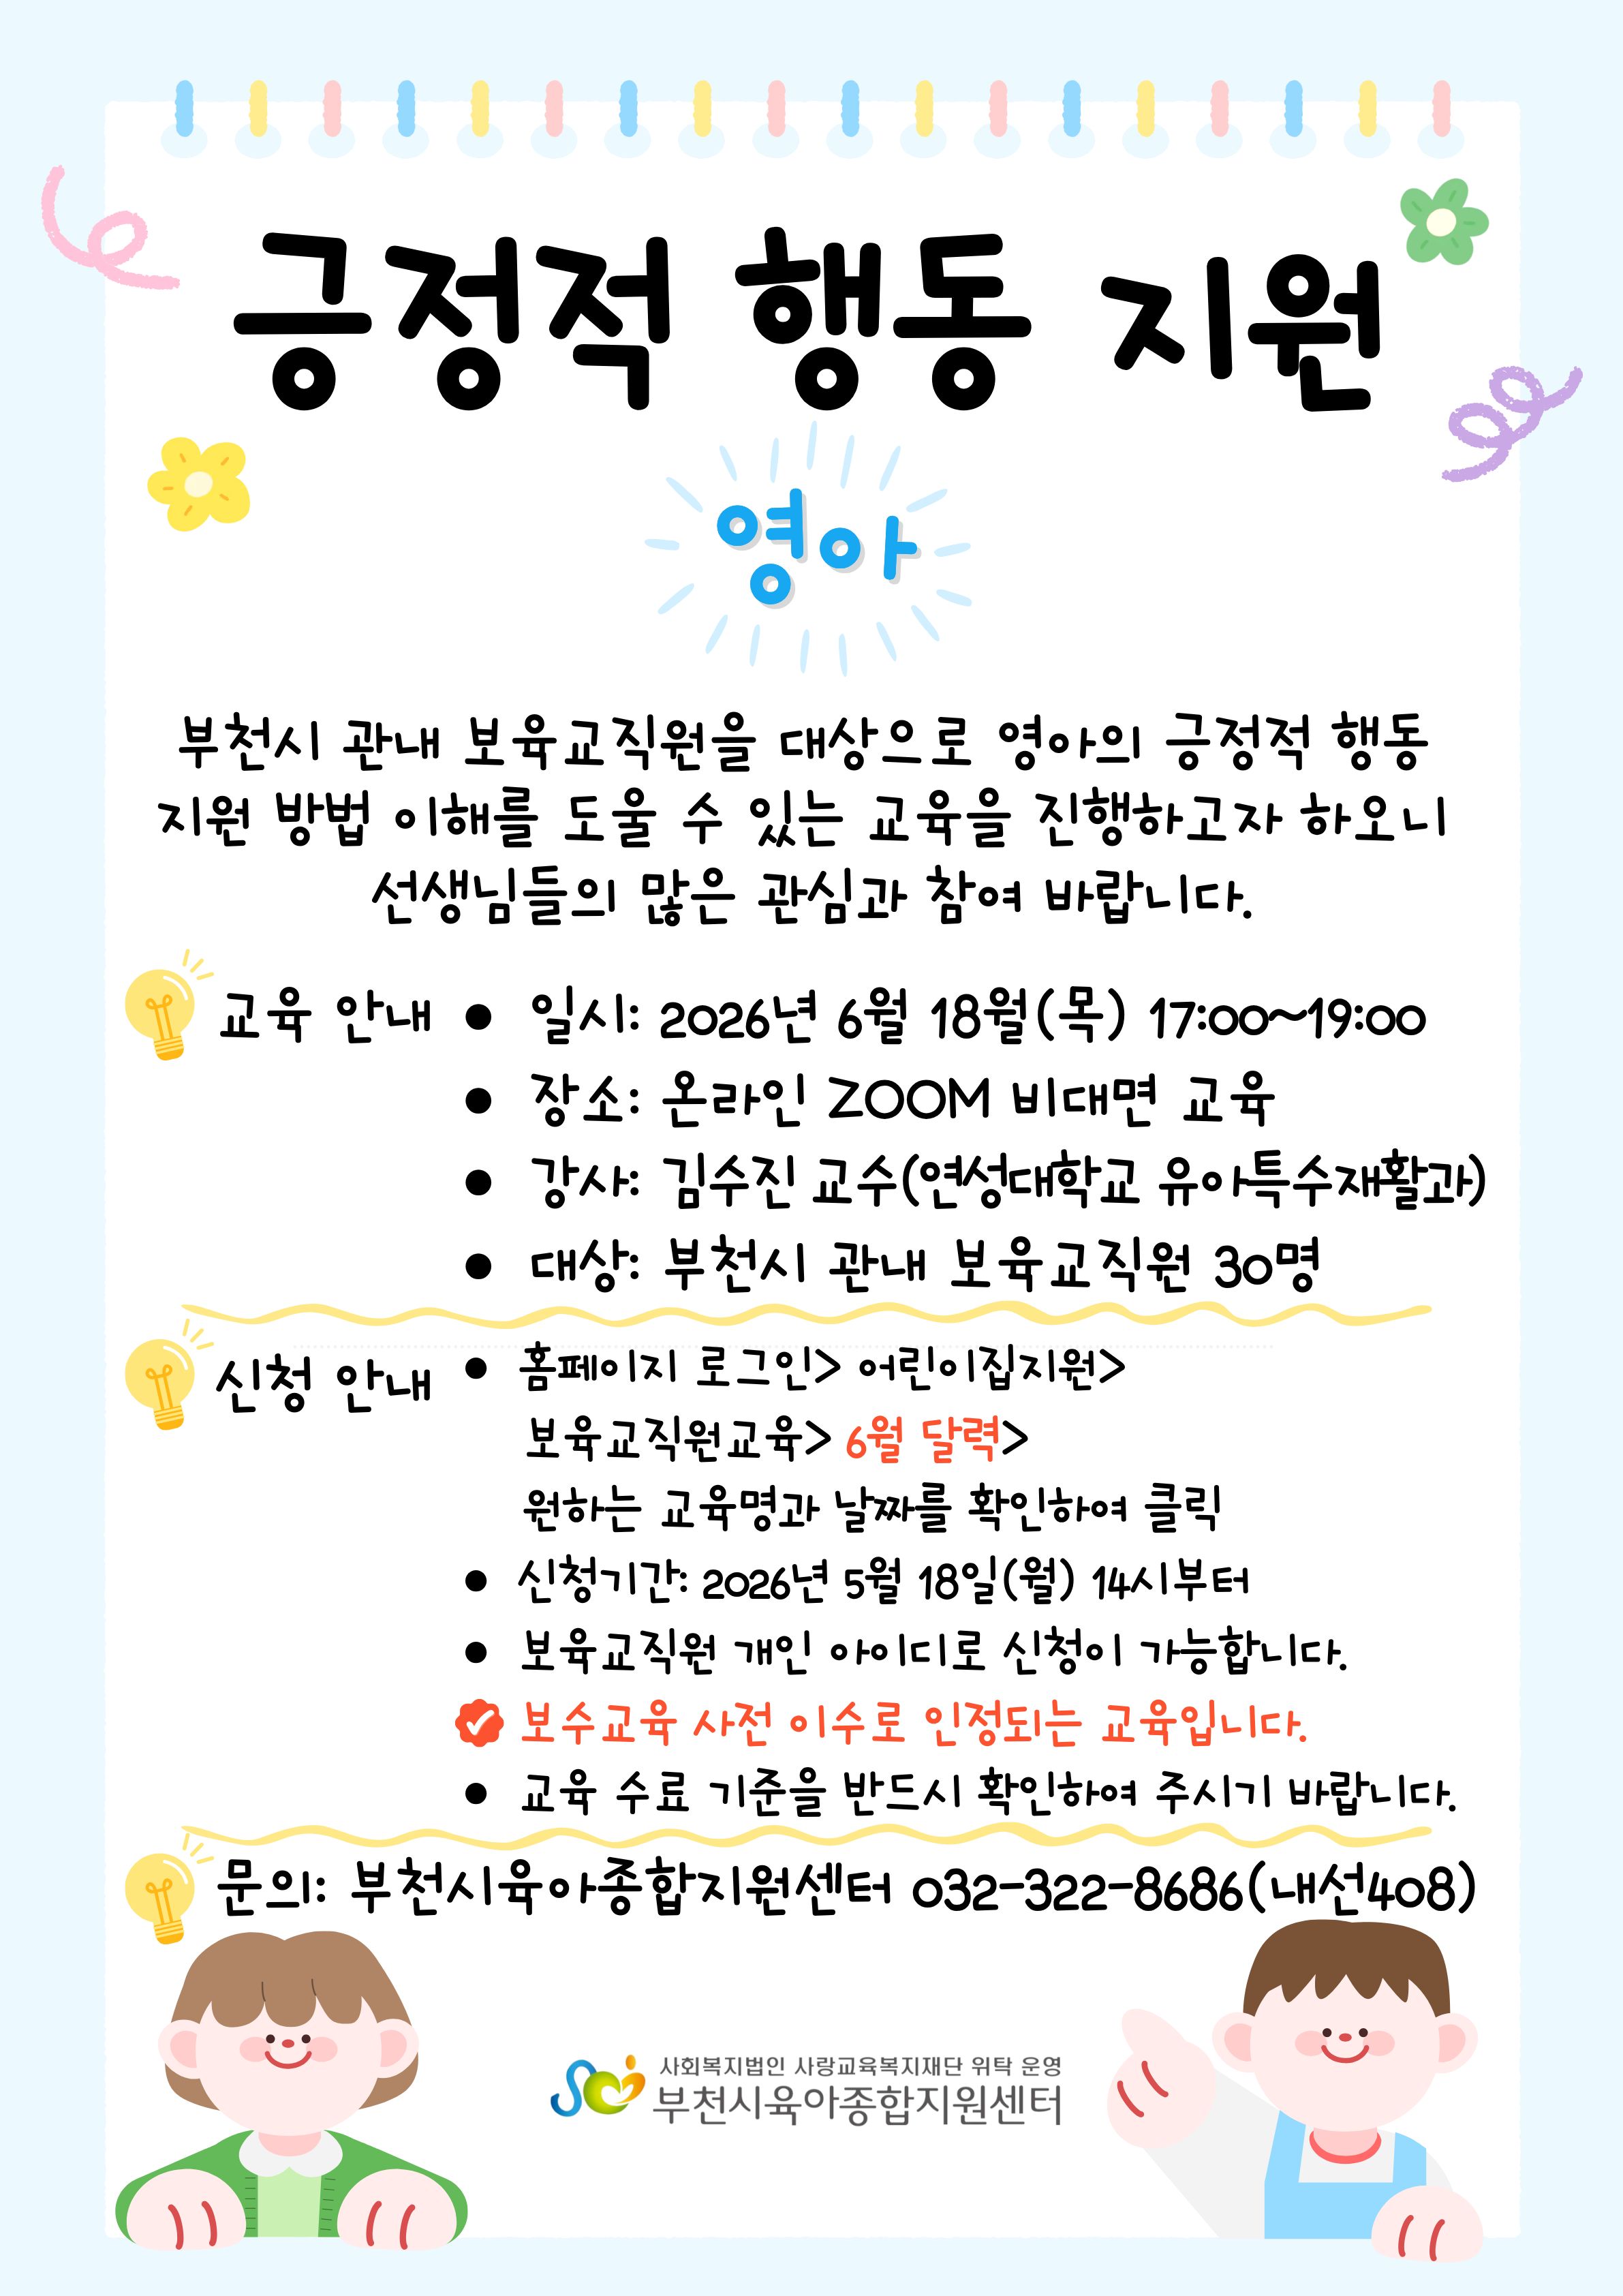 긍정적 행동 지원
영아
부천시 관내 보육교직원을 대상으로 영아의 긍정적 행동
지원 방법 이해를 도울 수 있는 교육을 진행하고자 하오니
선생님들의 많은 관심과 참여 바랍니다.
교육 안내 ● 일시: 2026년 6월 18월(목) 17:00~19:00
● 장소: 온라인 ZOOM 비대면 교육
● 강사: 김수진 교수(연성대학교 유아특수재활과)
● 대상: 부천시 관내 보육교직원 30명
신청 안내 ● 홈페이지 로그인> 어린이집지원>
보육교직원교육> 6월 달력>
원하는 교육명과 날짜를 확인하여 클릭
● 신청기간: 2026년 5월 18일(월) 14시부터
● 보육교직원 개인 아이디로 신청이 가능합니다.
보수교육 사전 이수로 인정되는 교육입니다.
● 교육 수료 기준을 반드시 확인하여 주시기 바랍니다.
문의: 부천시육아종합지원센터 032-322-8686(내선408)
사회복지법인 사랑교육복지재단 위탁 운영
부천시육아종합지원센터